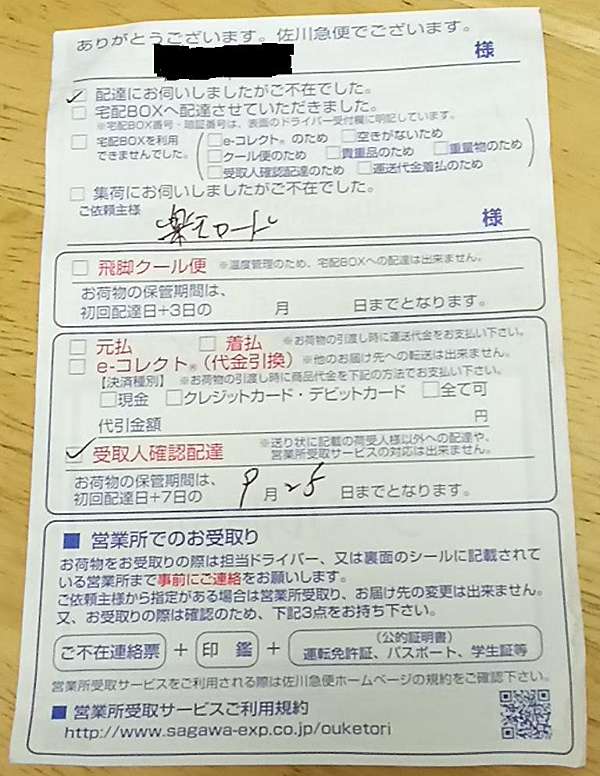 ありがとうございます。佐川急便でございます。
様
配達にお伺いしましたがご不在でした。
宅配BOXへ配達させていただきました。
※宅配BOX番号・暗証番号は、表面のドライバー受付欄に明記しています。
宅配BOXを利用できませんでした。
e-コレクト®のため 空きがないため
クール便のため 貴重品のため 重量物のため
受取人確認配達のため 運送代金着払のため
集荷にお伺いしましたがご不在でした。
ご依頼主様
楽天カード 様
飛脚クール便 ※温度管理のため、宅配BOXへの配達は出来ません。
お荷物の保管期間は、
初回配達日+3日の 月 日までとなります。
元払 着払 ※お荷物の引渡し時に運送代金をお支払い下さい。
e-コレクト®(代金引換) ※他のお届け先への転送は出来ません。
【決済種別】 ※お荷物の引渡し時に商品代金を下記の方法でお支払い下さい。
現金 クレジットカード・デビットカード 全て可
代引金額 円
受取人確認配達 ※送り状に記載の荷受人様以外への配達や、
営業所受取サービスの対応は出来ません。
お荷物の保管期間は、
初回配達日+7日の 9月25日までとなります。
■ 営業所でのお受取り
お荷物をお受取りの際は担当ドライバー、又は裏面のシールに記載されて
いる営業所まで事前にご連絡をお願いします。
ご依頼主様から指定がある場合は営業所受取り、お届け先の変更は出来ません。
又、お受取りの際は確認のため、下記3点をお持ち下さい。
ご不在連絡票 + 印鑑 + (公的証明書)
運転免許証、パスポート、学生証等
営業所受取サービスをご利用される際は佐川急便ホームページの規約をご確認下さい。
■ 営業所受取サービスご利用規約
http://www.sagawa-exp.co.jp/ouketori/